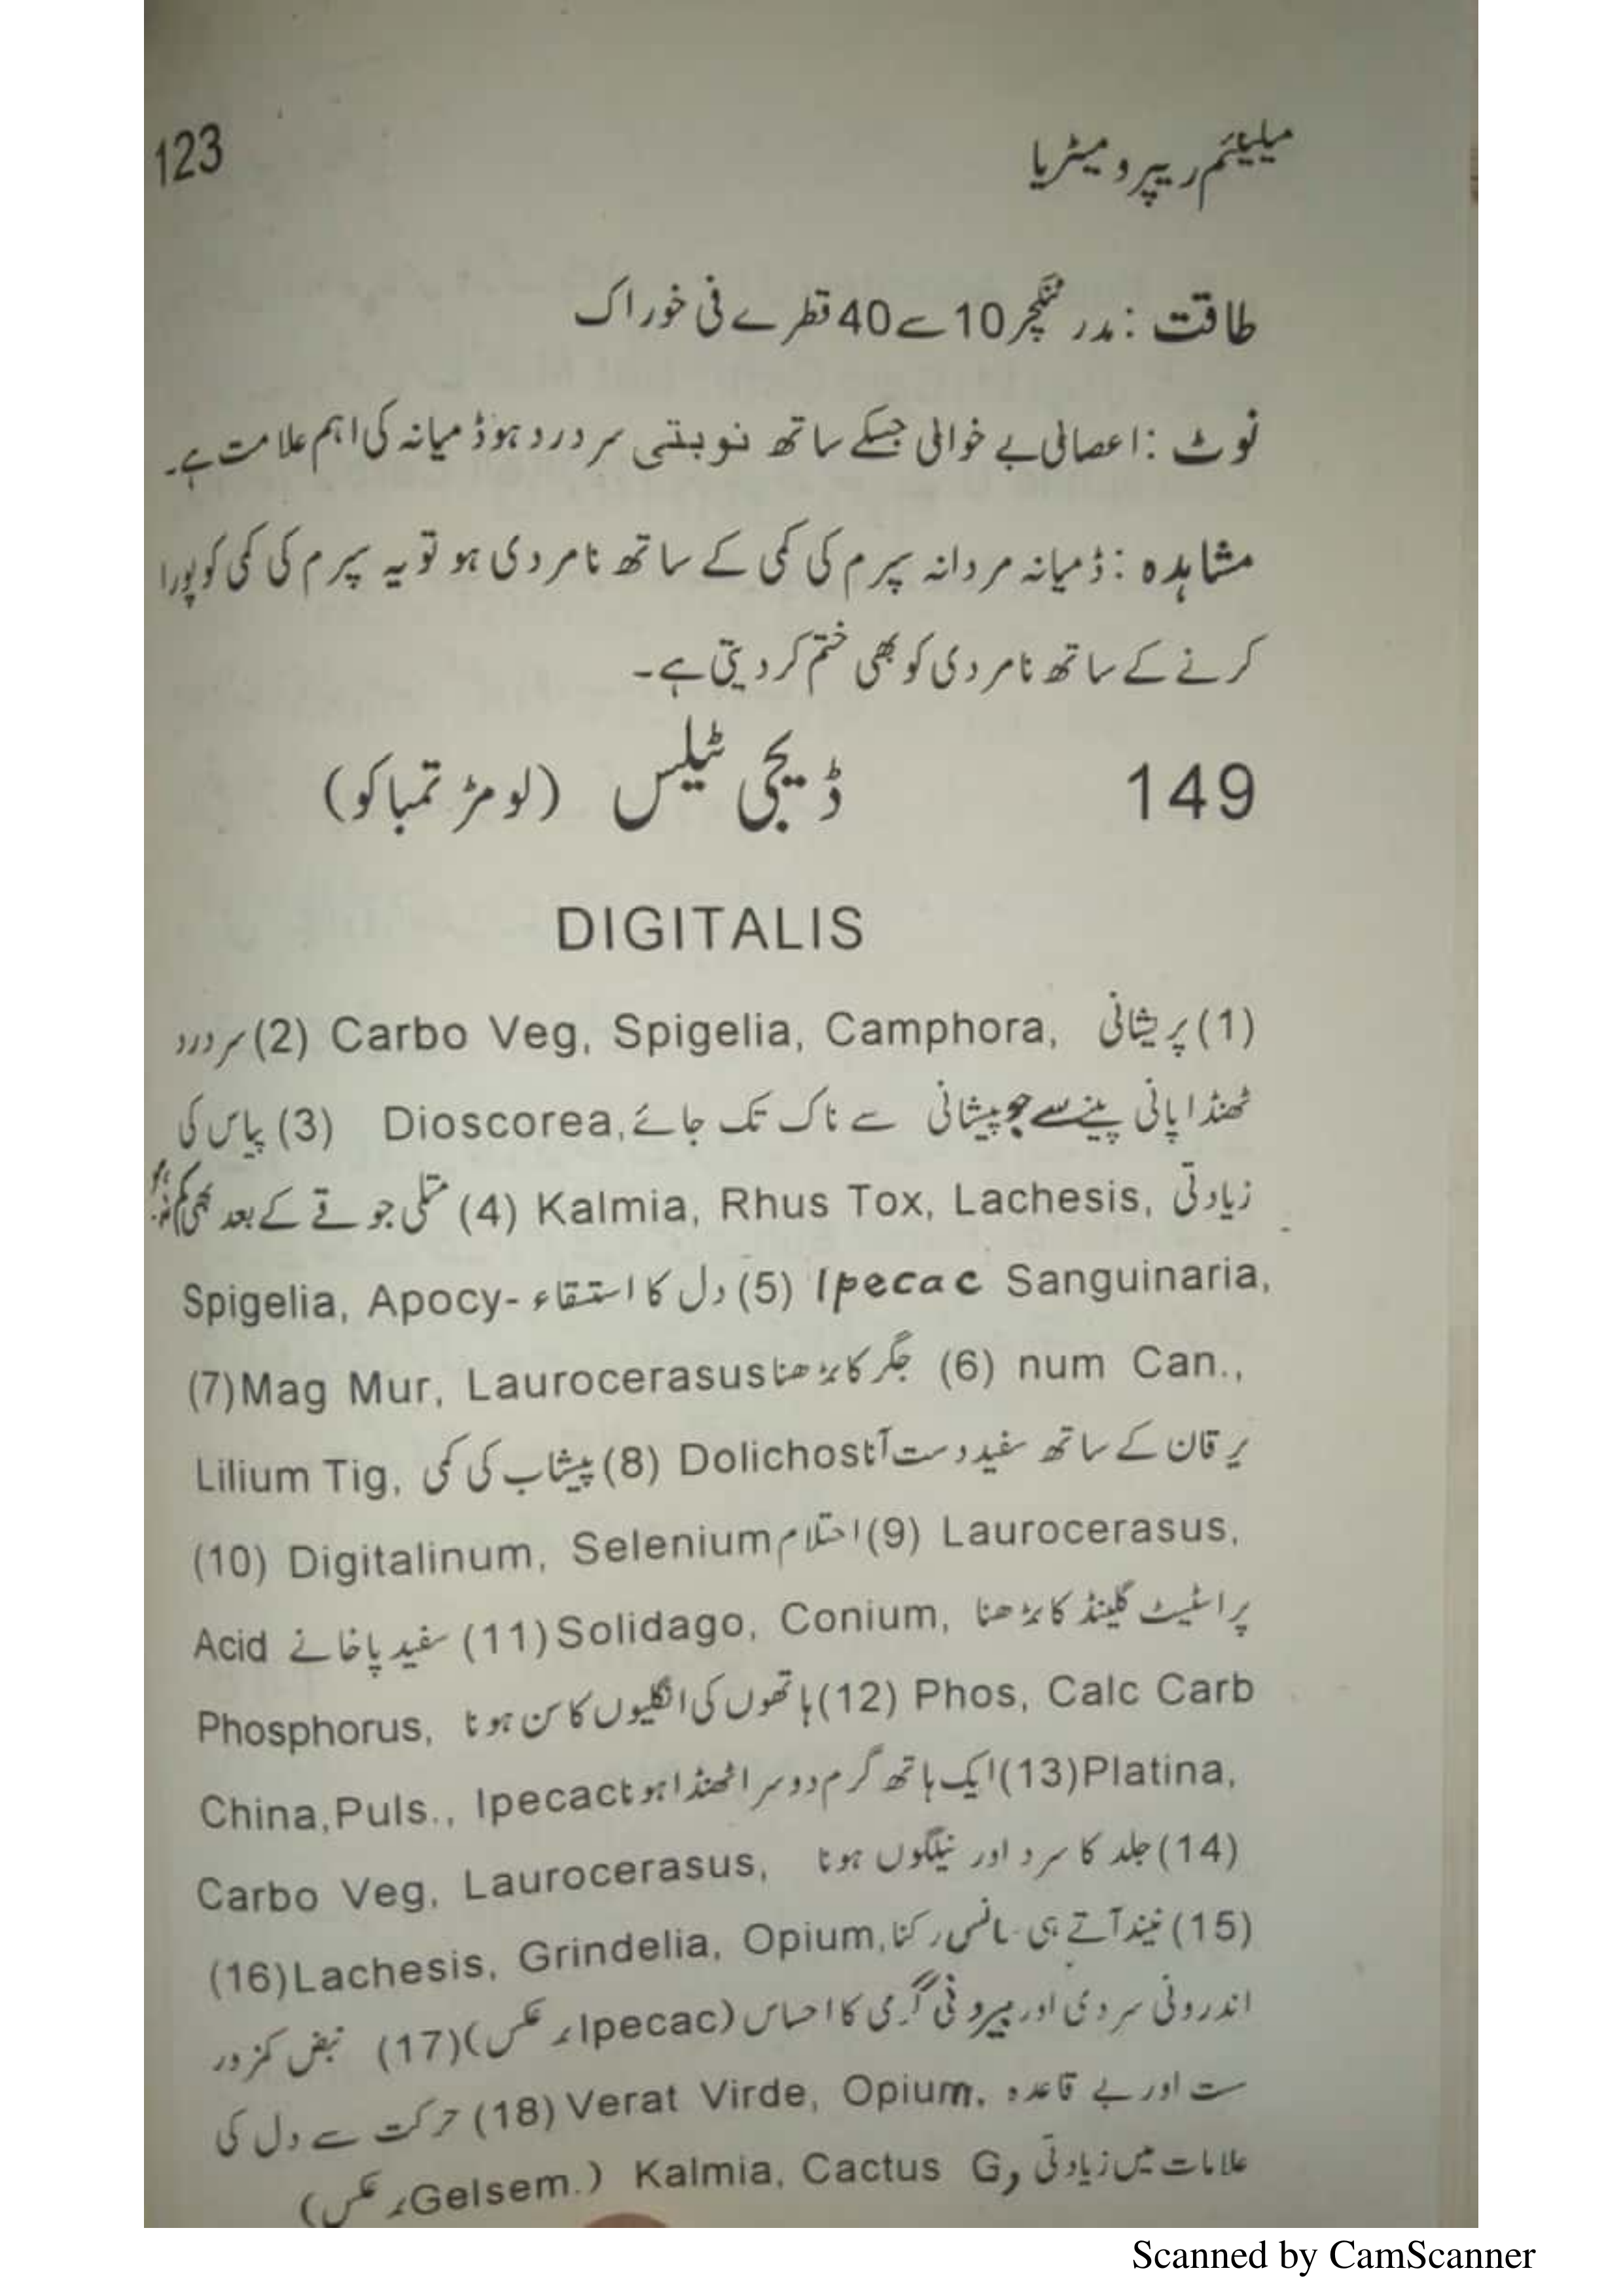 میلینیئم ریپرومیٹریا 123
طاقت : مدر ٹنکچر 10 سے 40 قطرے فی خوراک
نوٹ : اعصابی بے خوابی جسکے ساتھ نوبتی سر درد ہو ڈمیانہ کی اہم علامت ہے۔
مشاہدہ : ڈمیانہ مردانہ سپرم کی کمی کے ساتھ نامردی ہو تو یہ سپرم کی کمی کو پورا
کرنے کے ساتھ نامردی کو بھی ختم کر دیتی ہے۔
149 ڈیجی ٹیلس (لومڑ تمباکو)
DIGITALIS
(1) پریشانی Carbo Veg, Spigelia, Camphora, (2) سر درد
ٹھنڈا پانی پینے سے جو پیشانی سے ناک تک جائے Dioscorea, (3) پیاس کی
زیادتی Kalmia, Rhus Tox, Lachesis, (4) متلی جو قے کے بعد بھی کم نہ ہو
Ipecac Sanguinaria, (5) دل کا استسقاء Spigelia, Apocy-
num Can., (6) جگر کا بڑھنا Mag Mur, Laurocerasus (7)
یرقان کے ساتھ سفید دست آنا Dolichos (8) پیشاب کی کمی Lilium Tig,
Laurocerasus, (9) احتلام Digitalinum, Selenium (10)
پراسٹیٹ گلینڈ کا بڑھنا Solidago, Conium, (11) سفید پاخانے Acid
Phos, Calc Carb (12) ہاتھوں کی انگلیوں کا سن ہونا Phosphorus,
Platina, (13) ایک ہاتھ گرم دوسرا ٹھنڈا ہونا China,Puls., Ipecac
(14) جلد کا سرد اور نیلگوں ہونا Carbo Veg, Laurocerasus,
(15) نیند آتے ہی سانس رکنا Lachesis, Grindelia, Opium, (16)
اندرونی سردی اور بیرونی گرمی کا احساس (Ipecac بر عکس) (17) نبض کمزور
ست اور بے قاعدہ Verat Virde, Opium, (18) حرکت سے دل کی
علامات میں زیادتی Kalmia, Cactus G, (Gelsem. بر عکس)
Scanned by CamScanner